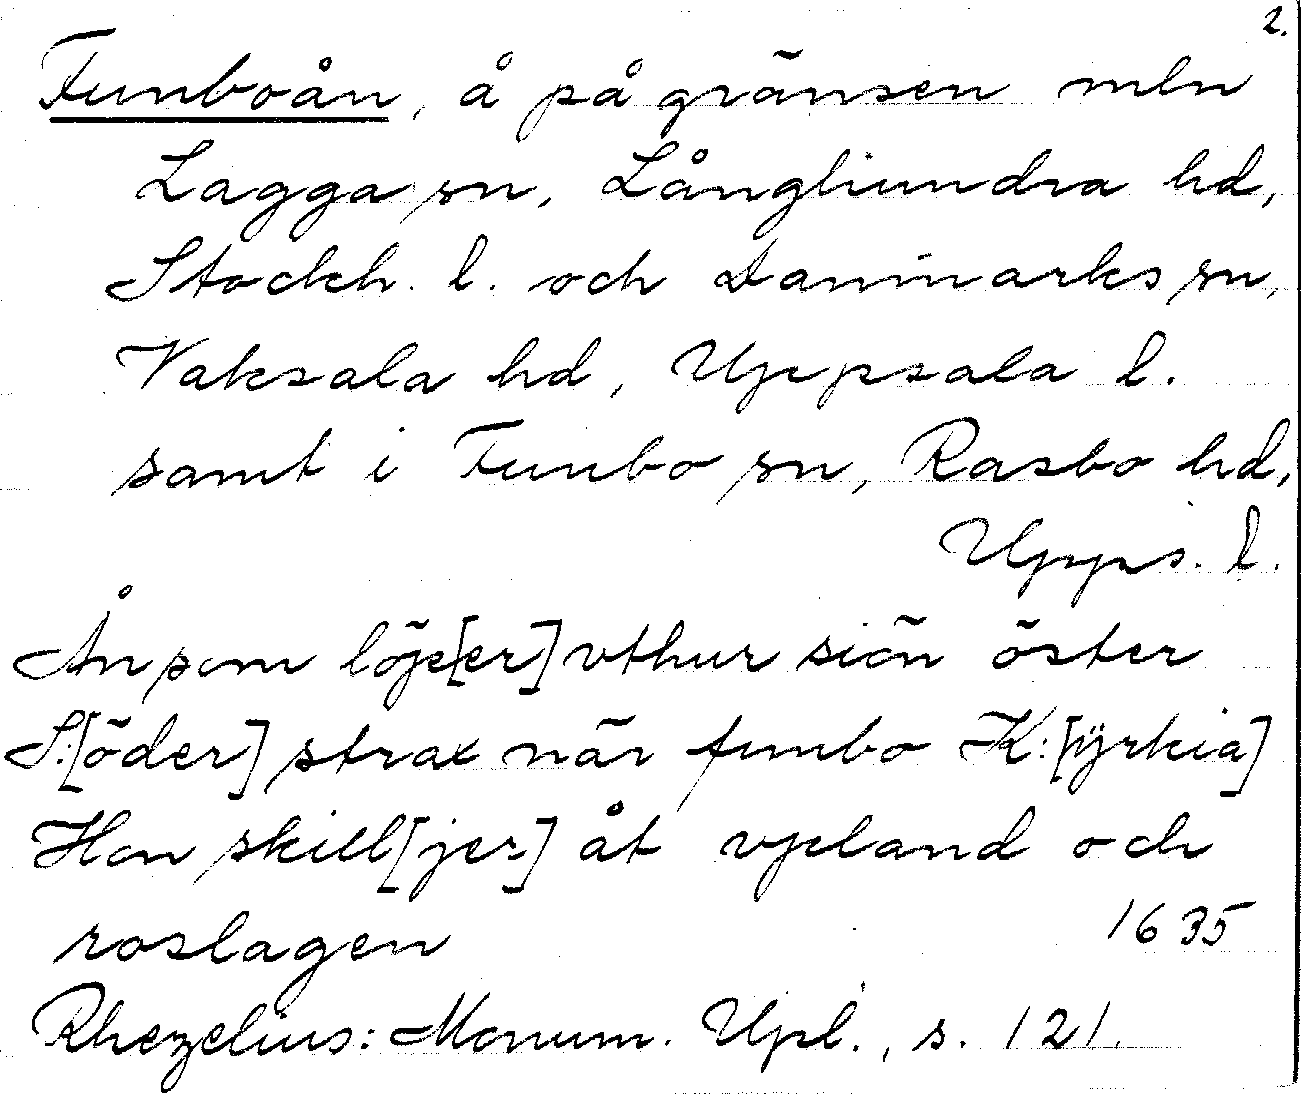 2.
Funboån, å på gränsen mln
Lagga sn, Långhundra hd,
Stockh. l. och Danmarks sn,
Vaksala hd, Uppsala l.
samt i Funbo sn, Rasbo hd,
Upps. l.
Ån som löp[er] vthur siön öster
S:[öder] strax när funbo K:[iÿrkia]
Hon skill[jer] åt vpland och
roslagen 1635
Rhezelius: Monum. Upl., s. 121.